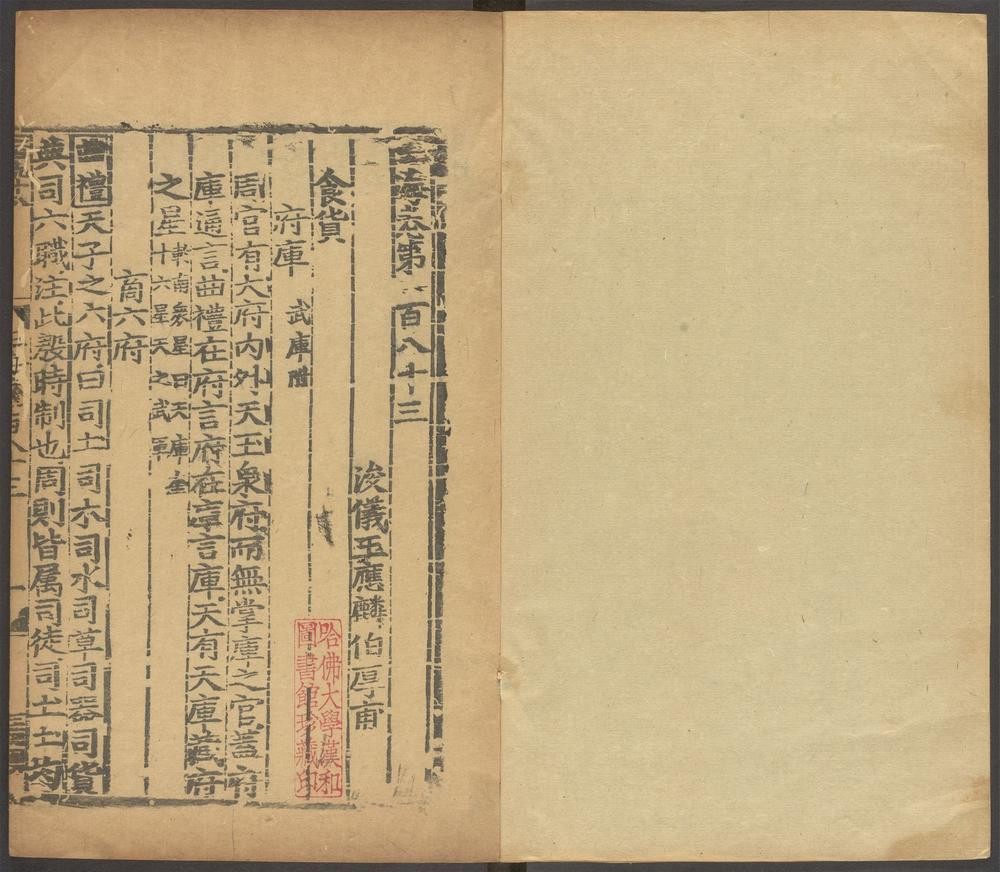 玉海卷第一百八十三
浚儀王應麟伯厚甫
食貨
府庫 武庫附
周官有大府內外天王泉府而無掌庫之官蓋府
庫通言曲禮在府言府在庫言庫天有天庫藏府
之星 東南衆星曰天庫奎
十六星天之武庫
商六府
曲禮天子之六府曰司土司木司水司草司器司貨
典司六職注此殷時制也周則皆属司徒司土土均
哈佛大學漢和
圖書館珍藏印